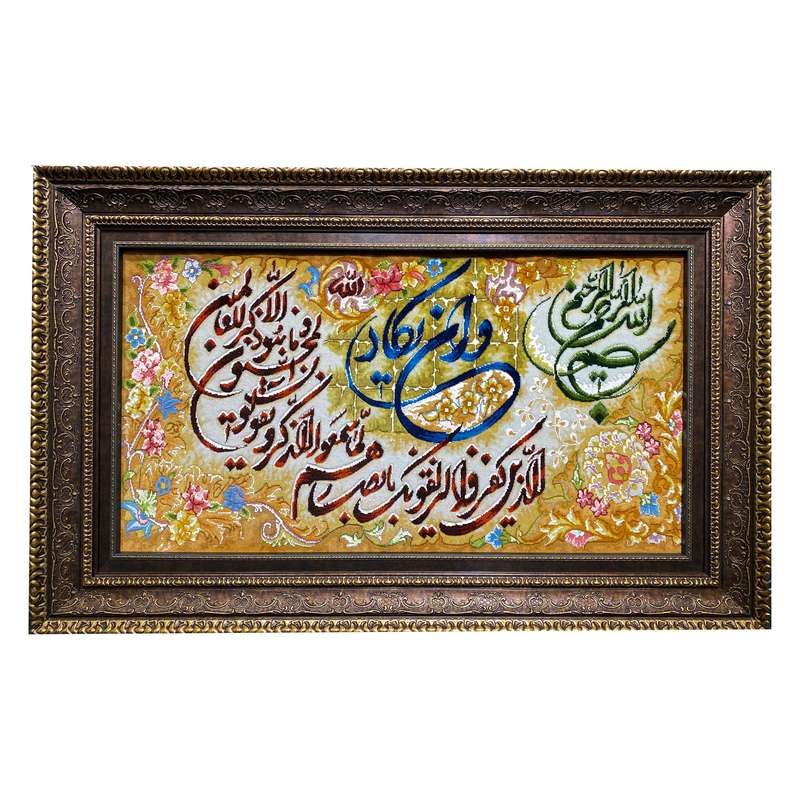 بسم الله الرحمن الرحیم
وان یکاد
الذین کفروا لیزلقونک بابصارهم
لما سمعوا الذکر و یقولون
انه لمجنون
و ما هو الا ذکر للعالمین
الله